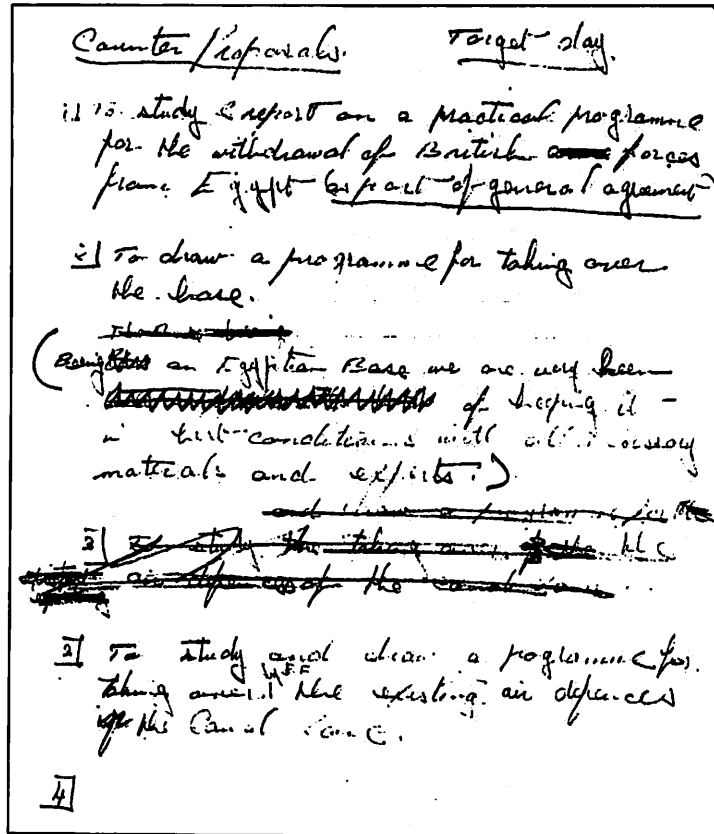 Counter Proposals. Target day.
1) To study & report on a practical programme
for the withdrawal of British forces
from Egypt as part of general agreement
2) To draw a programme for taking over
the base.
(Being an Egyptian Base we are very keen
of keeping it -
in best conditions with all necessary
materials and experts.)
3) To study the taking over the
air defences of the canal zone
3) To study and draw a programme for
taking over the existing air defences
of the Canal Zone.
4)